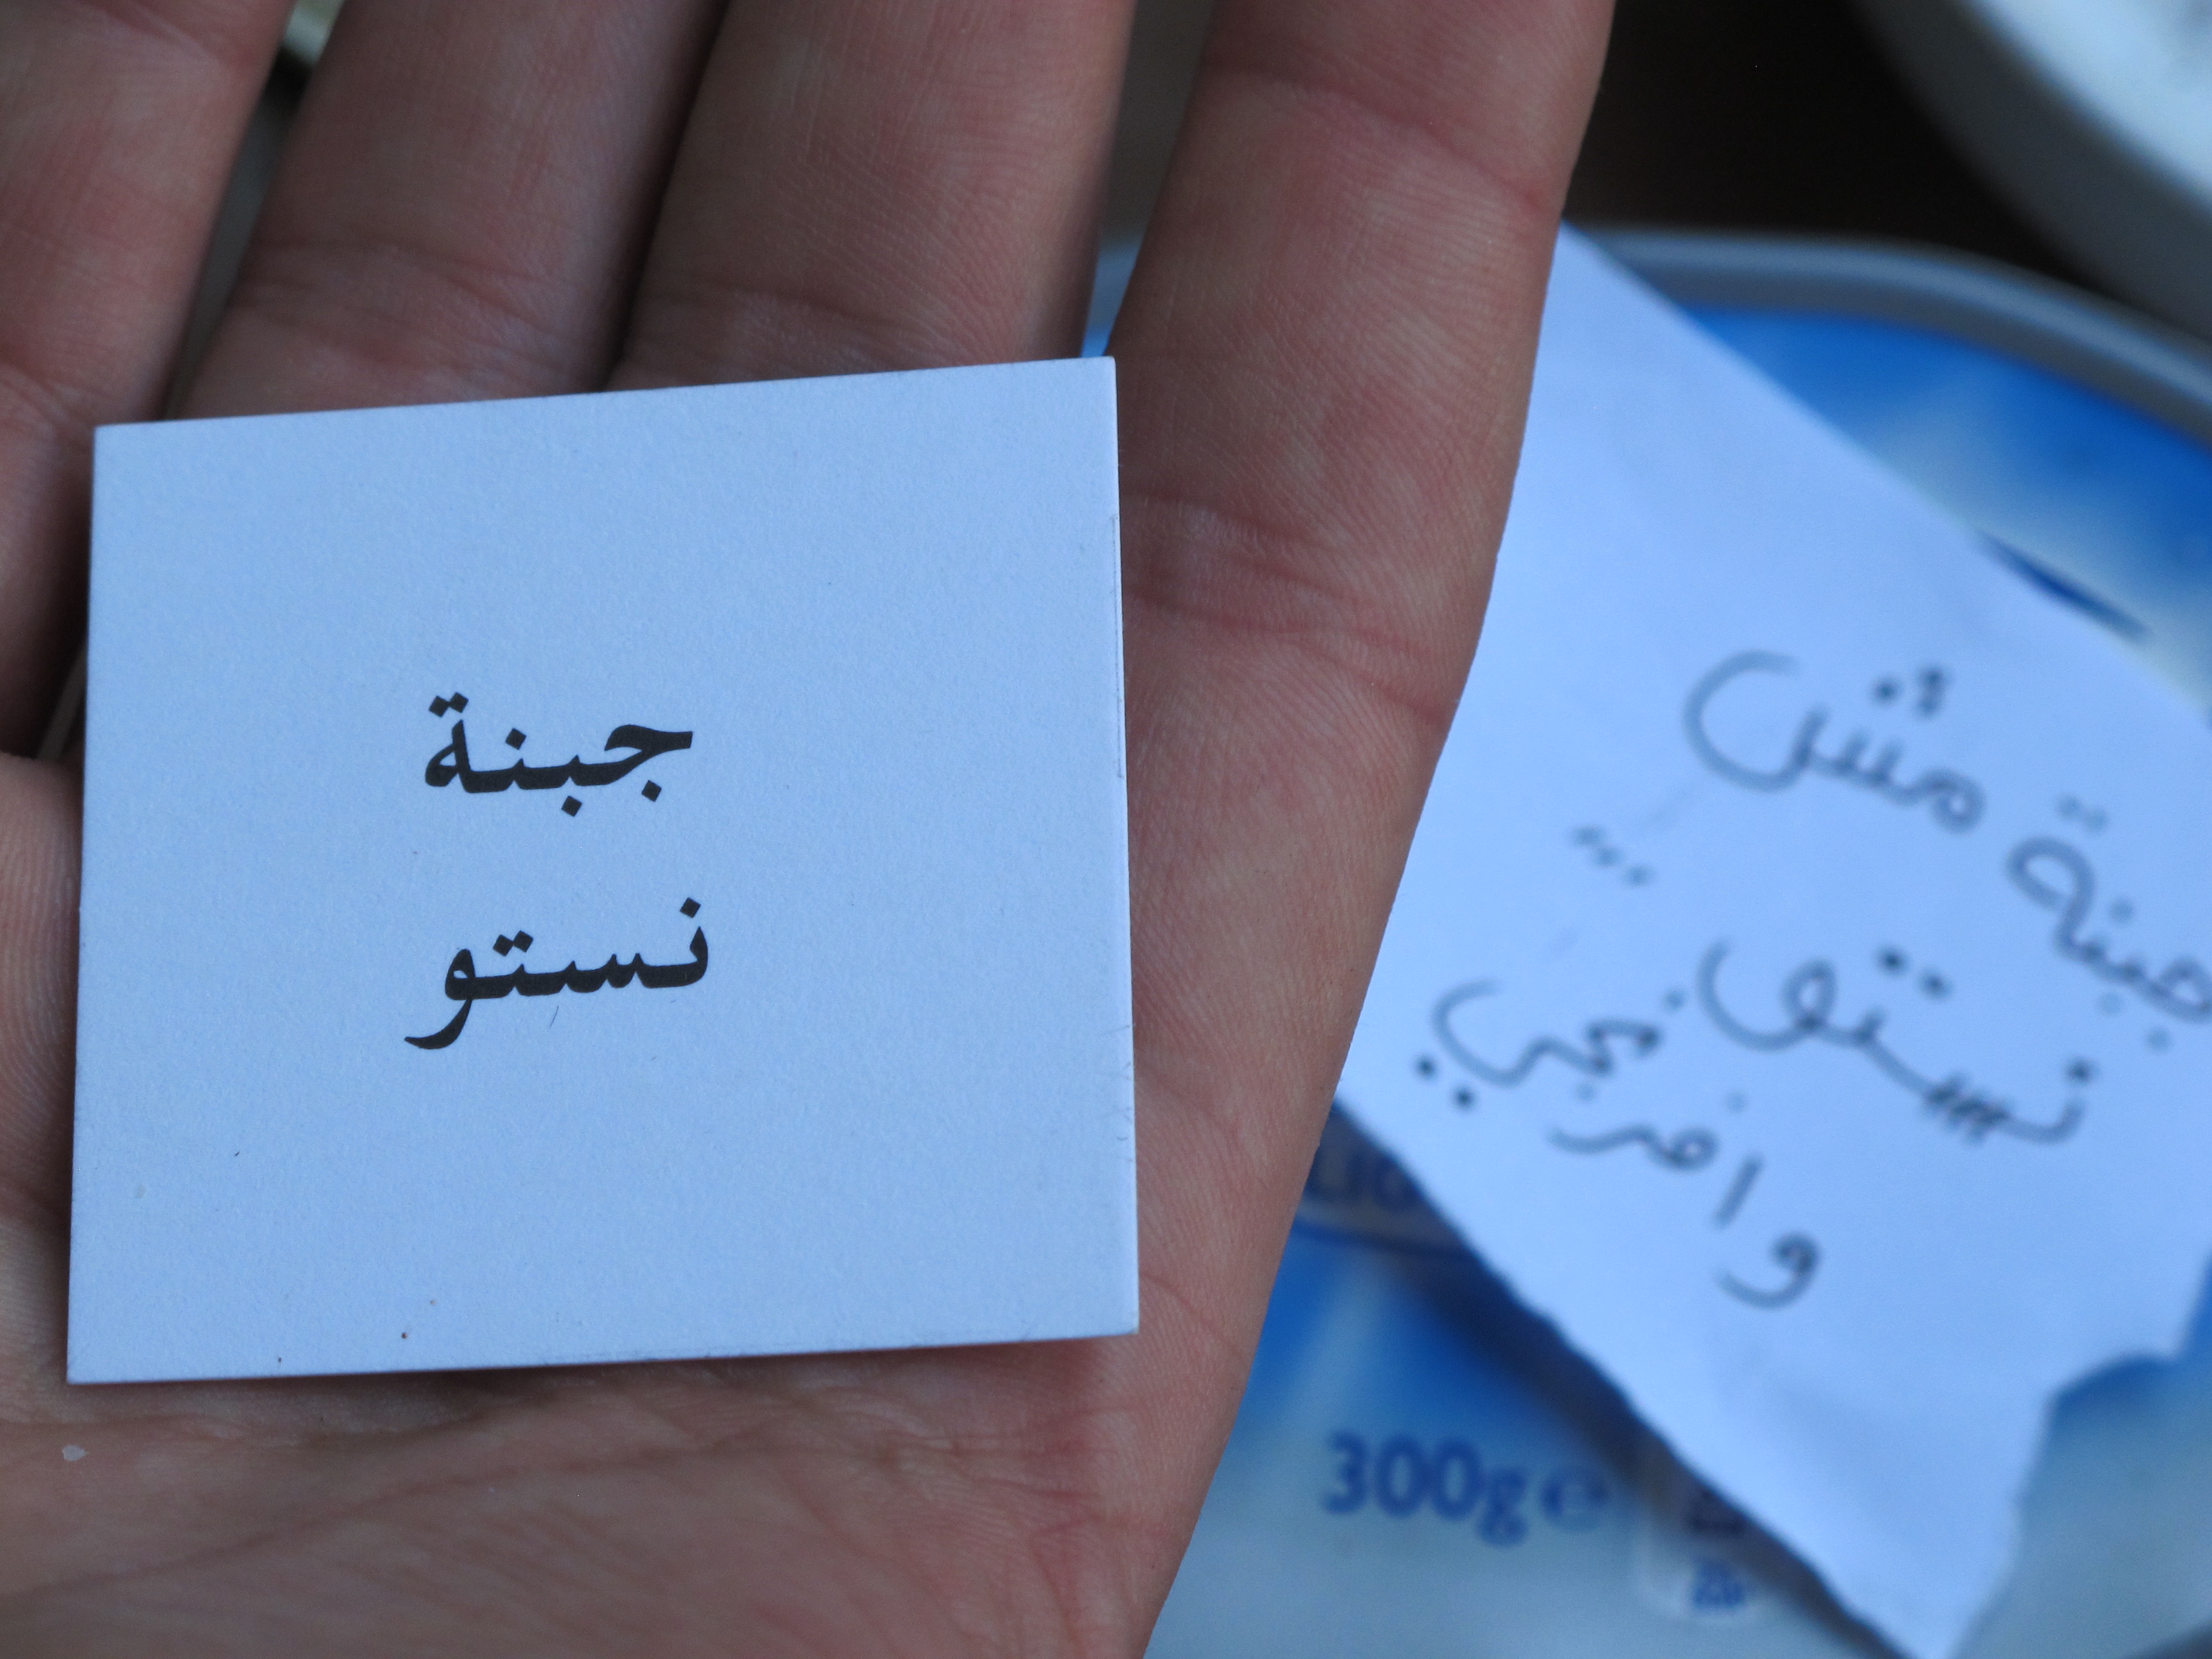 جبنة
نستو
جبنة مش
نستو
وافرنجي
300g e